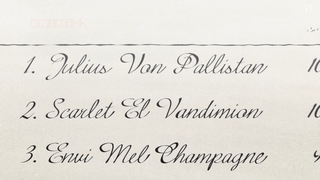 1. Julius Von Pallistan 10
2. Scarlet El Vandimion 10
3. Envi Mel Champagne